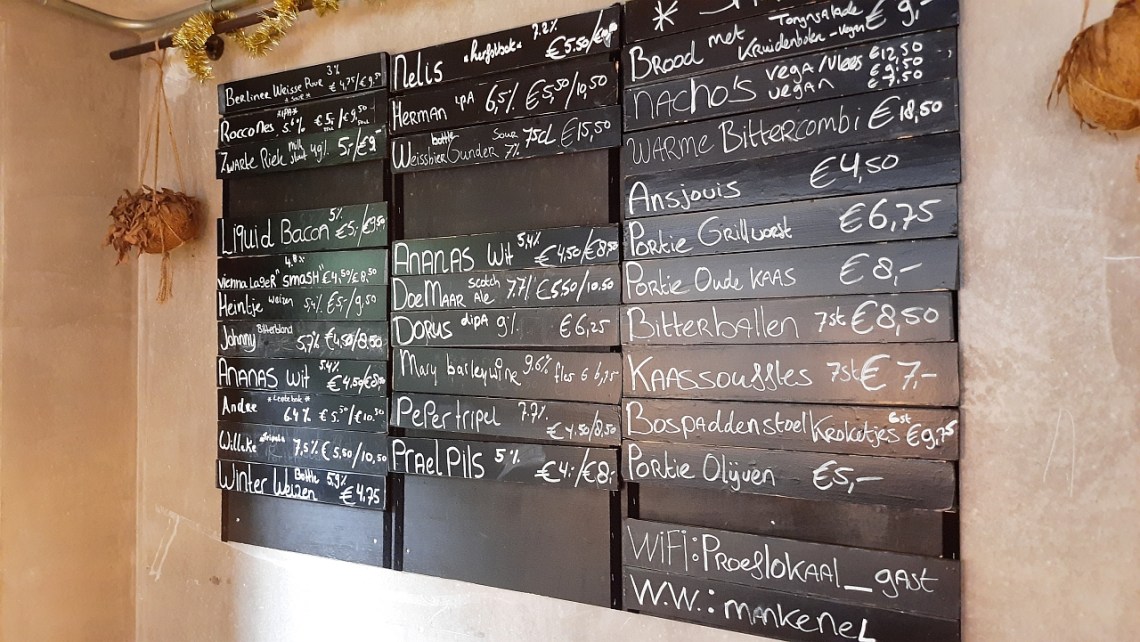 Berliner Weisse Puur 3% € 4,75/€ 9,50
Roccones "IPA" 5.6% € 5,-/€ 9,50
Zwarte Riek milk stout 4,9% 5,-/€9,-
Liquid Bacon 5% €5,-/€9,50
Vienna Lager "SMASH" 4.8% €4,50/€8,50
Heintje weizen 5,4% €5,-/9,50
Johnny Bitterblond 5,7% €4.50/8,50
Ananas wit 5.4% €4,50/€8,50
Andre "Lentebok" 6.4% € 5.50/€10.50
Willeke tripel 7,5% € 5,50/10,50
Winter Weizen Bottle 5.9% €4,75
Nelis "herfstbok" 7.2% €5.50/
Herman IPA 6,5% €5,50/10,50
Weissbier Gunder bottle Sour 7% 75cl €15,50
Ananas Wit 5,4% €4,50/8,50
DoeMaar Scotch Ale 7.7% €5.50/10.50
Dorus dIPA 9% €6,25
Mary barleywine 9.6% fles € 6,75
Pepertripel 7.7% €4.50/8,50
Prael Pils 5% €4,-/€8,-
*
Brood met Tonynsalade Kruidenboter - Vegan € 9,-
Nacho's vega/vlees €12,50
vegan
Warme Bittercombi €18,50
Ansjovis €4,50
Portie Grillworst €6,75
Portie Oude Kaas €8,-
Bitterballen 7st €8,50
Kaassouffles 7st € 7,-
Bospaddenstoel Kroketjes 6st €9,75
Portie Olijven €5,-
WiFi: Proeflokaal_gast
W.W.: mankeneL